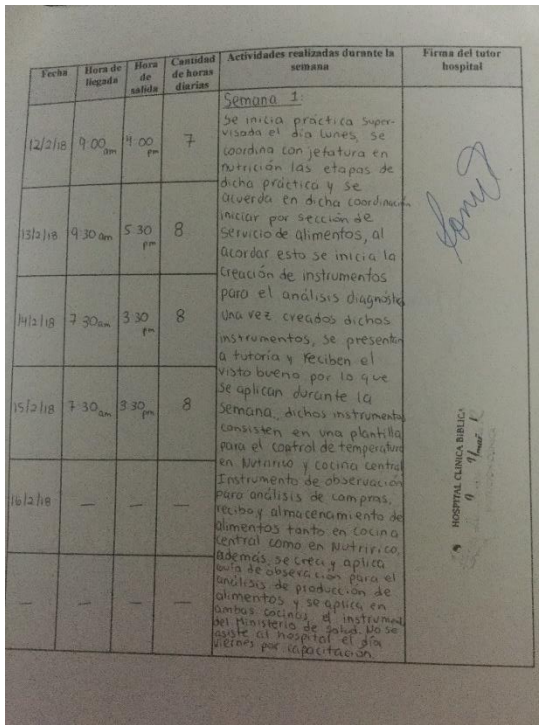 Fecha
Hora de llegada
Hora de salida
Cantidad de horas diarias
Actividades realizadas durante la semana
Firma del tutor hospital
12/2/18 9:00 am 4:00 pm 7
13/2/18 9:30 am 5:30 pm 8
14/2/18 7:30 am 3:30 pm 8
15/2/18 7:30 am 3:30 pm 8
16/2/18 — — —
— — — —
Semana 1:
Se inicia práctica super-
visada el día lunes, se
coordina con jefatura en
nutrición las etapas de
dicha práctica y se
acuerda en dicha coordinación
iniciar por sección de
servicio de alimentos, al
acordar esto se inicia la
creación de instrumentos
para el análisis diagnóstico
Una vez creados dichos
instrumentos, se presentan
a tutoría y reciben el
visto bueno por lo que
se aplican durante la
semana, dichos instrumentos
consisten en una plantilla
para el control de temperatura
en Nutririco y cocina central
Instrumento de observación
para análisis de compras,
recibo y almacenamiento de
alimentos tanto en cocina
central como en Nutririco,
además, se crea y aplica
guía de observación para el
análisis de producción de
alimentos y se aplica en
ambas cocinas, el instrumento
del Ministerio de Salud. No se
asiste al hospital el día
viernes por capacitación.
HOSPITAL CLINICA BIBLICA